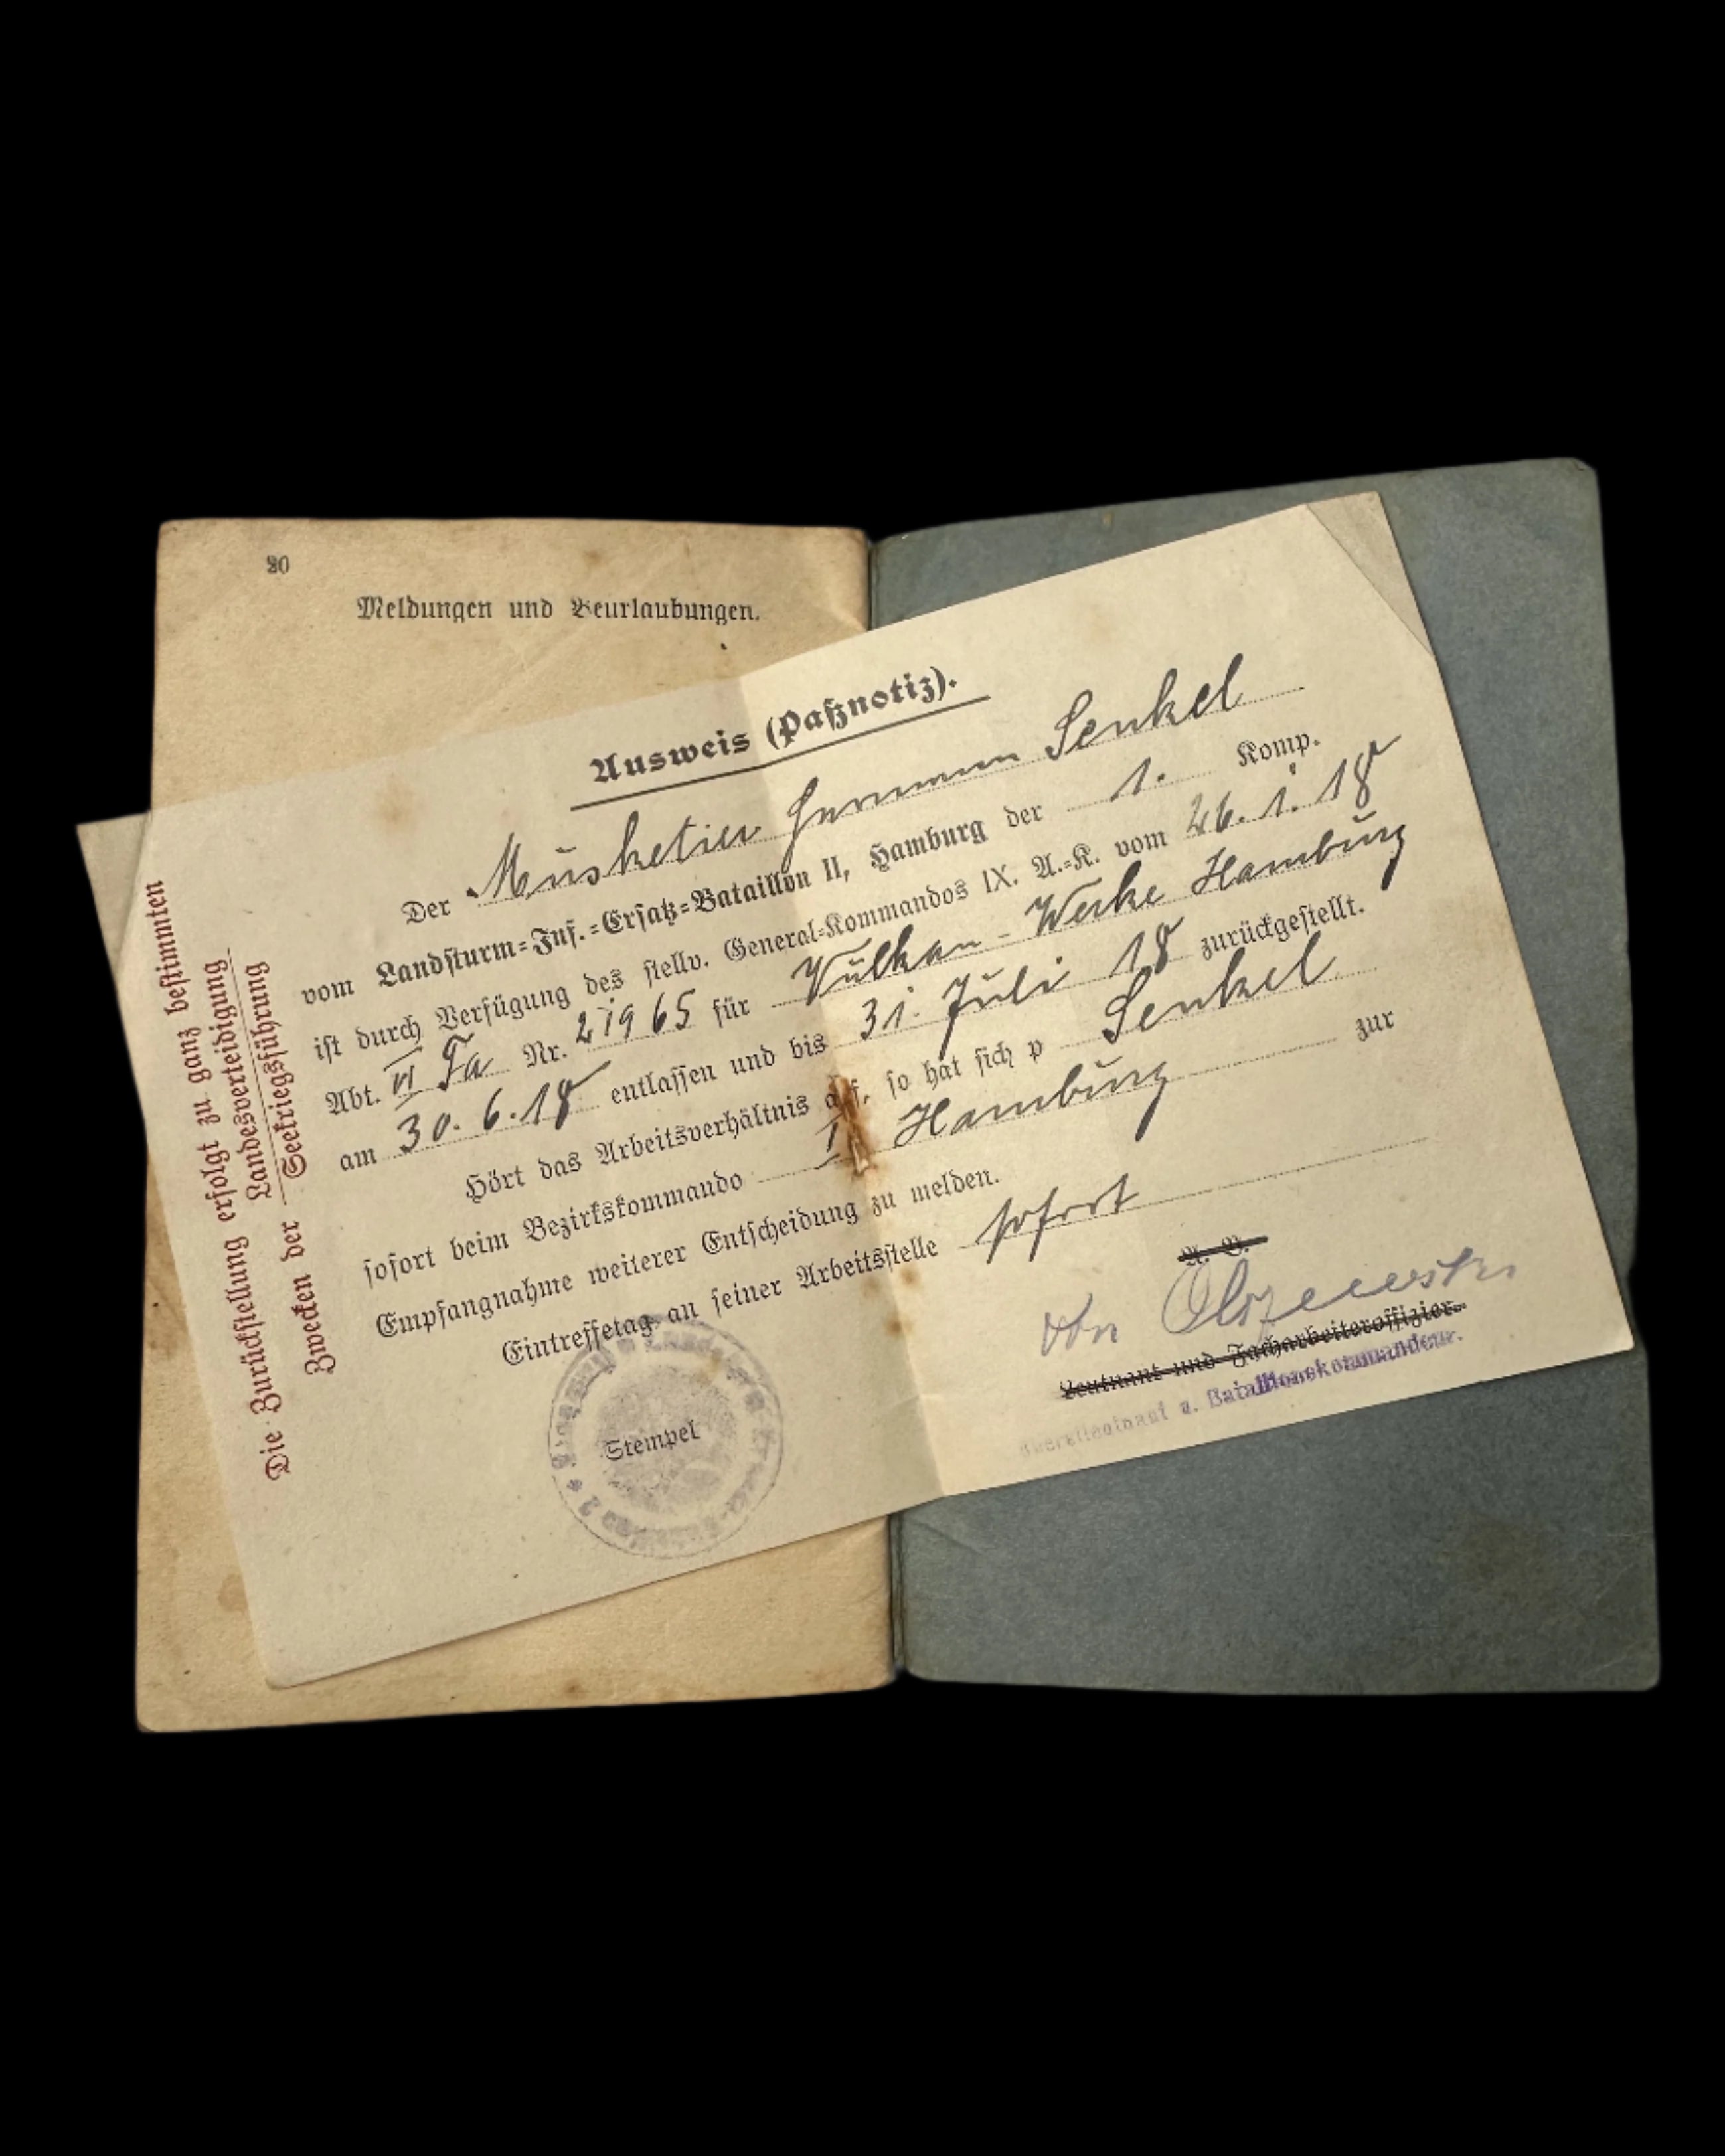 20
Meldungen und Beurlaubungen.
Ausweis (Paßnotiz).
Der Musketier Hermann Senkel
vom Landsturm=Inf.=Ersatz=Bataillon II, Hamburg der 1. Komp.
ist durch Verfügung des stellv. General=Kommandos IX. A.=K. vom 26.1.18
Abt. VI Fa Nr. 21965 für Vulkan - Werke Hamburg
am 30.6.18 entlassen und bis 31. Juli 18 zurückgestellt.
Hört das Arbeitsverhältnis auf, so hat sich p Senkel
sofort beim Bezirkskommando Hamburg zur
Empfangnahme weiterer Entscheidung zu melden.
Eintreffetag an seiner Arbeitsstelle sofort
A. B.
von Olszewski
Leutnant und Facharbeiteroffizier.
Oberstleutnant u. Bataillonskommandeur.
Stempel
Die Zurückstellung erfolgt zu ganz bestimmten
Zwecken der Landesverteidigung
Seekriegsführung